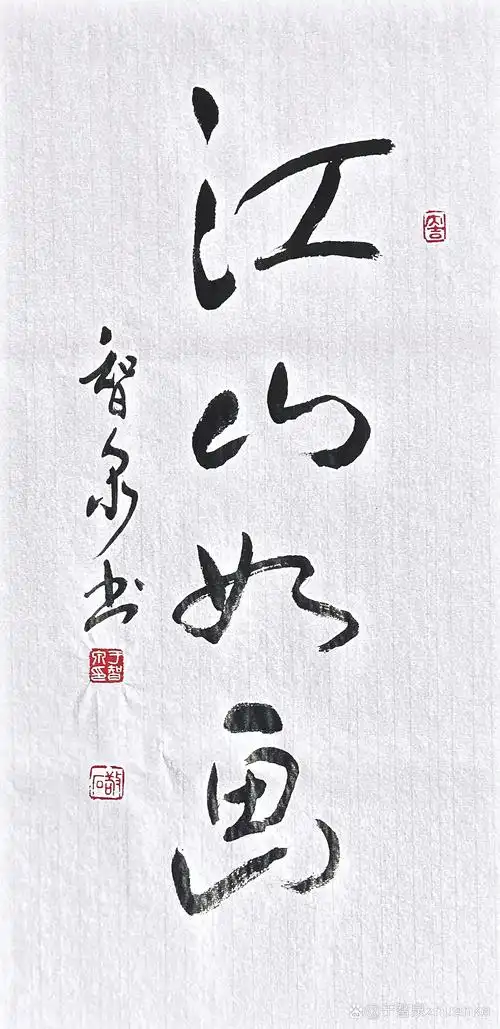 江山如画
智泉书
于智泉印
于智泉zhuanke